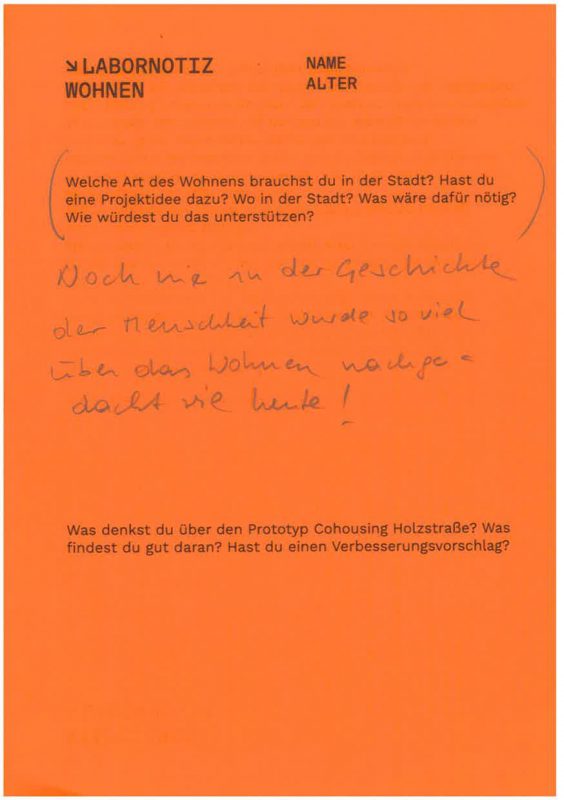 ↘LABORNOTIZ
WOHNEN
NAME
ALTER
Welche Art des Wohnens brauchst du in der Stadt? Hast du
eine Projektidee dazu? Wo in der Stadt? Was wäre dafür nötig?
Wie würdest du das unterstützen?
Noch nie in der Geschichte
der Menschheit wurde so viel
über das Wohnen nachge=
dacht wie heute!
Was denkst du über den Prototyp Cohousing Holzstraße? Was
findest du gut daran? Hast du einen Verbesserungsvorschlag?